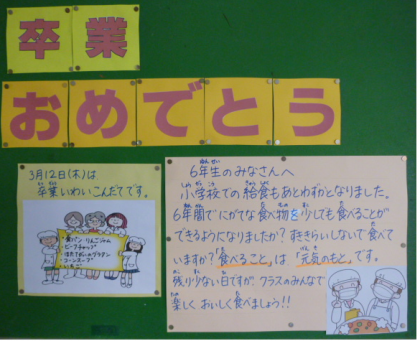 卒業
おめでとう
3月12日(木)は
卒業いわいこんだてです。
ビーフシチュー
コーンスープ
いちご
6年生のみなさんへ
小学校での給食もあとわずかとなりました。
6年間でにがてな食べ物を少しでも食べることが
できるようになりましたか?すききらいしないで食べて
いますか?「食べること」は「元気のもと」です。
残り少ない日ですが、クラスのみんなで
楽しくおいしく食べましょう!!